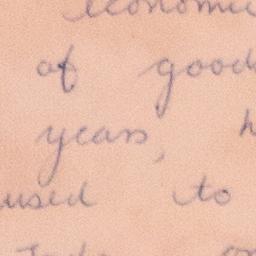 economic
of good
years, h
used to